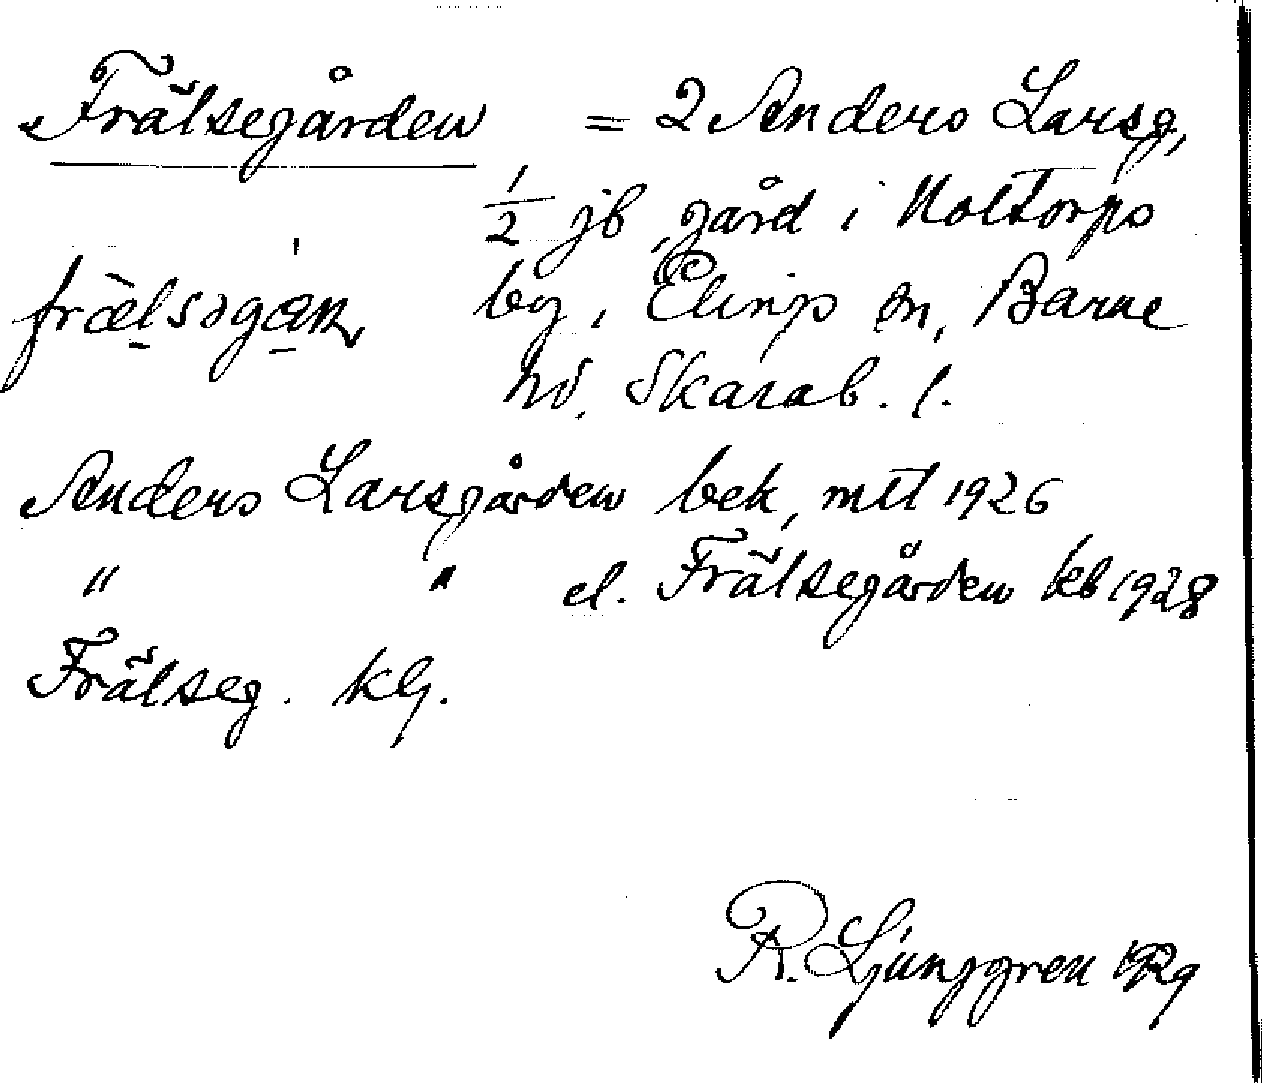 Frälsegården = 2 Anders Larsg,
1/2 jb, gård i Noltorps
frælsogan by, Elings sn, Barne
hd. Skarab. l.
Anders Larsgården bek, mtl 1926
" " el. Frälsegården kb 1928
Frälseg. kG.
R. Ljunggren 1929